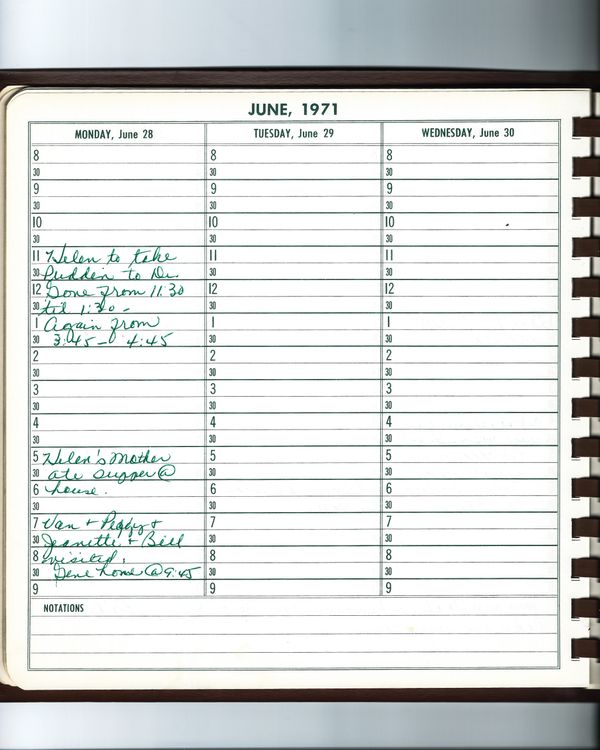 JUNE, 1971
MONDAY, June 28
TUESDAY, June 29
WEDNESDAY, June 30
8 8 8
30 30 30
9 9 9
30 30 30
10 10 10
30 30 30
11 Helen to take 11 11
30 Puddin to Dr. 30 30
12 Gone from 11:30 12 12
30 'til 1:30 - 30 30
1 Again from 1 1
30 3:45 - 4:45 30 30
2 2 2
30 30 30
3 3 3
30 30 30
4 4 4
30 30 30
5 Helen's Mother 5 5
30 ate supper @ 30 30
6 house. 6 6
30 30 30
7 Van + Peggy + 7 7
30 Jeanette + Bill 30 30
8 visited. 8 8
30 Gene home @ 9:45 30 30
9 9 9
NOTATIONS